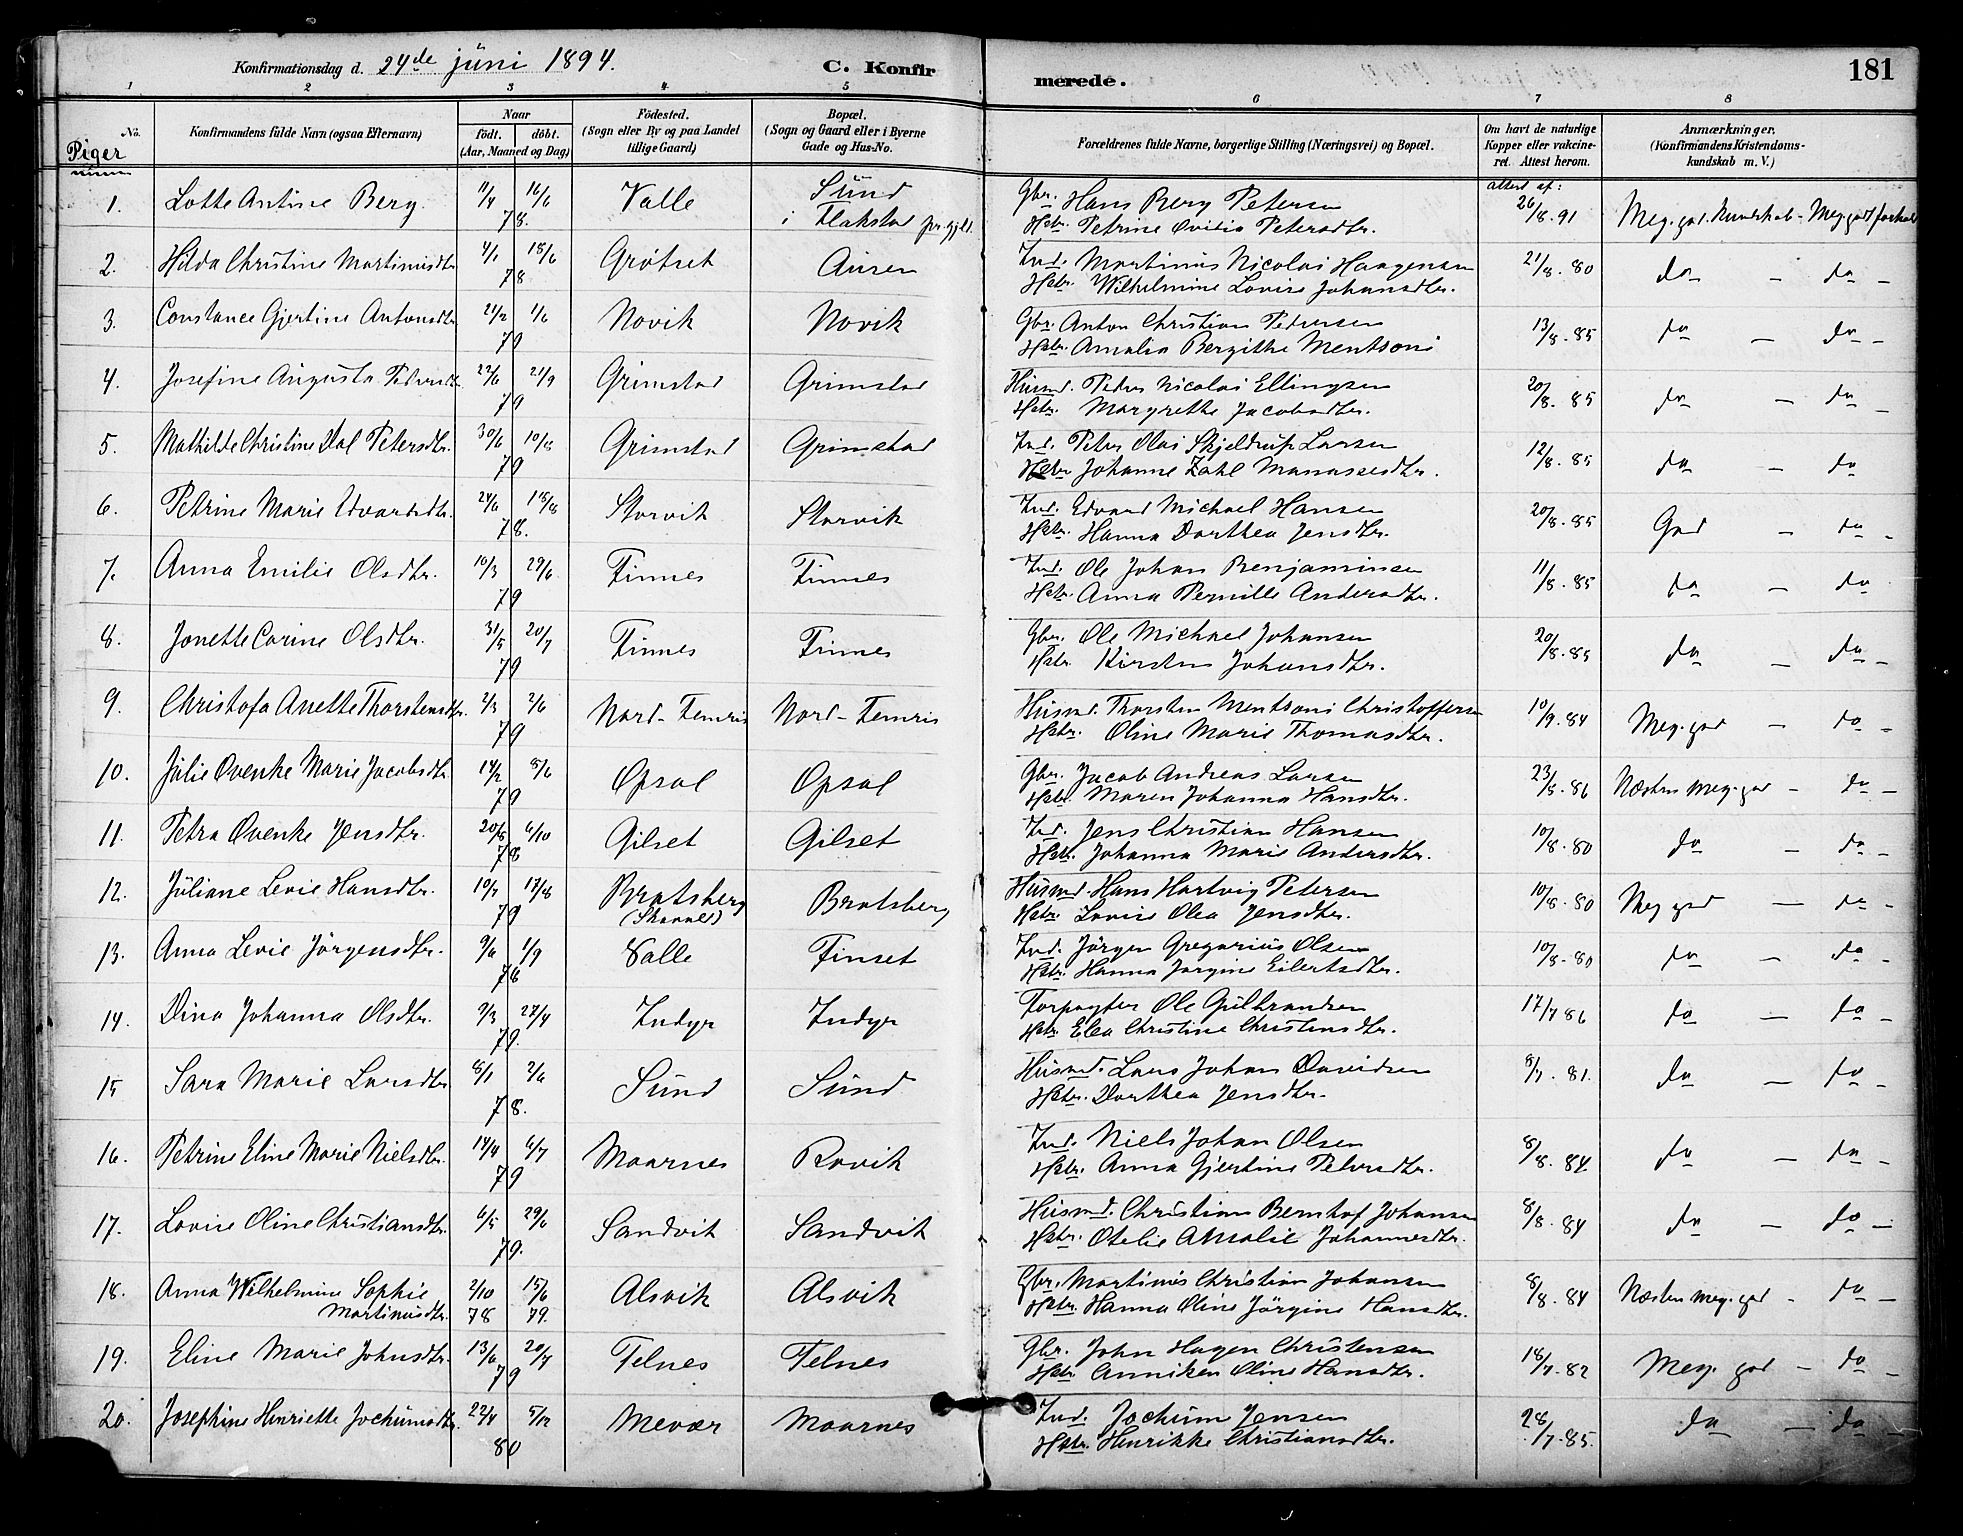 Konfirmationsdag d. 24de juni 1894. C. Konfirmerede. 181
1 2 3 4 5 6 7 8
No. Konfirmandens fulde Navn (ogsaa Efternavn) Naar født. døbt. (Aar, Maaned og Dag) Fødested. (Sogn eller By og paa Landet tillige Gaard) Bopæl. (Sogn og Gaard eller i Byerne Gade og Hus-No. Forældrenes fulde Navne, borgerlige Stilling (Næringsvei) og Bopæl. Om havt de naturlige Kopper eller vaccineret. Attest herom. Anmærkninger. (Konfirmandens Kristendomskundskab m. V.)
Piger
attest af:
1. Lotte Antine Berg. 11/4 16/6 78. Valle Sund i Flakstad Gbr. Hans Berg Petersen 26/8.91 Meg. god. Kundskab - Meg. godt forhold
Hstr. Petrine Ovidia Petersdtr.
2. Hilda Christine Martinusdtr. 4/1 18/6 78. Grötset Auren Ind. Martinus Nicolai Haagensen 21/8.80 do - do -
Hstr. Wilhelmine Lovise Johansdtr.
3. Constance Gjertine Antonsdtr. 24/2 1/6 79 Novik Novik Gbr. Anton Christian Petersen 13/8.85 do - do -
Hstr. Amalia Bergithe Mentsoni
4. Josefine Augusta Pedersdtr. 22/6 21/9 79 Grimstad Grimstad Husmd. Peder Nicolai Ellingsen 20/8.85 do - do -
Hstr. Margrethe Jacobsdtr.
5. Mathilde Christine Dal Petersdtr. 30/6 10/8 79 Grimstad Grimstad Ind. Peter Olai Skjeldrup Larsen 12/8.85 do - do
Hstr. Johanne Zahl Manassesdtr.
6. Petrine Marie Edvardsdtr. 24/6 18/8 78. Storvik Storvik Ind. Edvard Michael Hansen 20/8.85 God - do -
Hstr. Hanna Dorthea Jensdtr.
7. Anna Emilie Olsdtr. 10/3 29/6 79 Finnes Finnes Ind. Ole Johan Benjaminsen 11/8.85 do - do
Hstr. Anna Pernille Andersdtr.
8. Jonette Carine Olsdtr. 31/5 20/7 79 Finnes Finnes Gbr. Ole Michael Johansen 20/8.85 do - do -
Hstr. Kirsten Johansdtr.
9. Christofa Anette Thorstensdtr. 2/3 2/6 79 Nord-Femris Nord-Femris Husmd. Thorsten Mentsoni Christoffersen 10/9.84 Meg. god - do -
Hstr. Oline Marie Thomasdtr.
10. Julie Ovenke Marie Jacobsdtr. 14/2 8/6 79 Opsal Opsal Gbr. Jacob Andreas Larsen 23/8.86 Næsten meg. god - do -
Hstr. Maren Johanna Hansdtr.
11. Petra Ovenke Jensdtr. 20/8 6/10 78 Gilset Gilset Ind. Jens Christian Hansen 10/8.80 do - do -
Hstr. Johanna Marie Andersdtr.
12. Juliane Levie Hansdtr. 10/7 17/8 79 Bratsberg Bratsberg Husmd. Hans Hartvig Petersen 10/8.80 Meg god - do -
Hstr. Lovise Olea Jensdtr.
13. Anna Levie Jörgensdtr. 9/6 1/9 78 Valle Finset Ind. Jörgen Gregarius Olsen 10/8.80 do - do -
Hstr. Hanna Jorgine Eilertsdtr.
14. Dina Johanna Olsdtr. 2/3 27/4 79. Indyr Indyr Forpagter Ole Gulbrandsen 17/7 86 do - do -
Hstr. Elea Christine Christensdtr.
15 Sara Marie Larsdtr. 8/1 2/6 78. Sund Sund Husmd. Lars Johan Davidsen 8/7.81. do - do -
Hstr. Dorthea Jensdtr.
16. Petrine Eline Marie Nielsdtr. 14/4 6/7 79 Maarnes Ravik Ind. Niels Johan Olsen 8/8.84. do - do -
Hstr. Anna Gjertine Petersdtr.
17. Lovise Oline Christiansdtr. 6/5 29/6 79. Sandvik Sandvik Husmd. Christian Bernhof Johansen 8/8.84 do - do -
Hstr. Otelie Amalie Johannesdtr.
18. Anna Wilhelmine Sophie 2/10 15/6 Alsvik Alsvik Gbr. Martinus Christian Johansen 8/8.84 Næsten meg. god - do -
Martinusdtr. 78 79. Hstr. Hanna Oline Jörgine Hansdtr.
19. Eline Marie Johnsdtr. 13/6 20/7 79 Telnes Telnes Gbr. John Hagen Christensen 18/7.82 Meg. god - do -
Hstr. Anniken Oline Hansdtr.
20. Josephine Henriette Jochumsdtr. 22/4 5/12 80 Mevær Maarnes Ind. Jochum Jensen 28/7.85. do - do -
Hstr. Henrikke Christiansdtr.